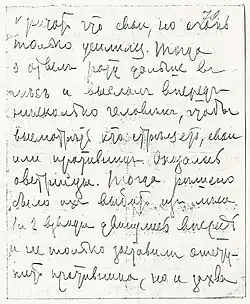 кричат что свои, но огонь
только усилился. Тогда
я отвел роту дальше в
и выслал вперед
несколько человек, чтобы
высмотреть кто стреляет, свои
или противник. Оказались
австрийцы. Тогда решено
было их выбить из
1 и 2 взводы двинулись вперед
и не только заставили
противника, но и